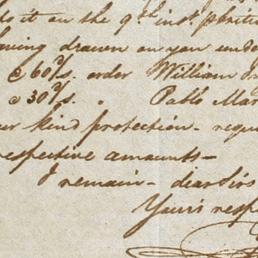 to it on the 9th inst.
drawn on you under
@ 60 d/s. order William
@ 30 d/s. " Pablo Mar
kind protection - requ
respective amounts -
I remain - dear Sirs
Yours resp